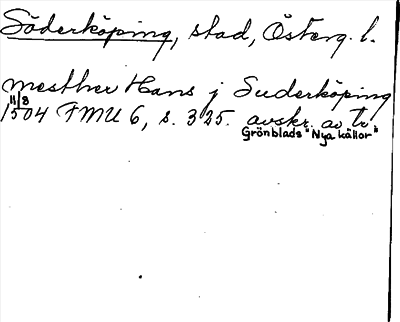 Söderköping, stad, Österg. l.
mesther Hans j Suderköping
11/8
1504 FMU 6, s. 325. avskr. av tr.
Grönblads "Nya källor"